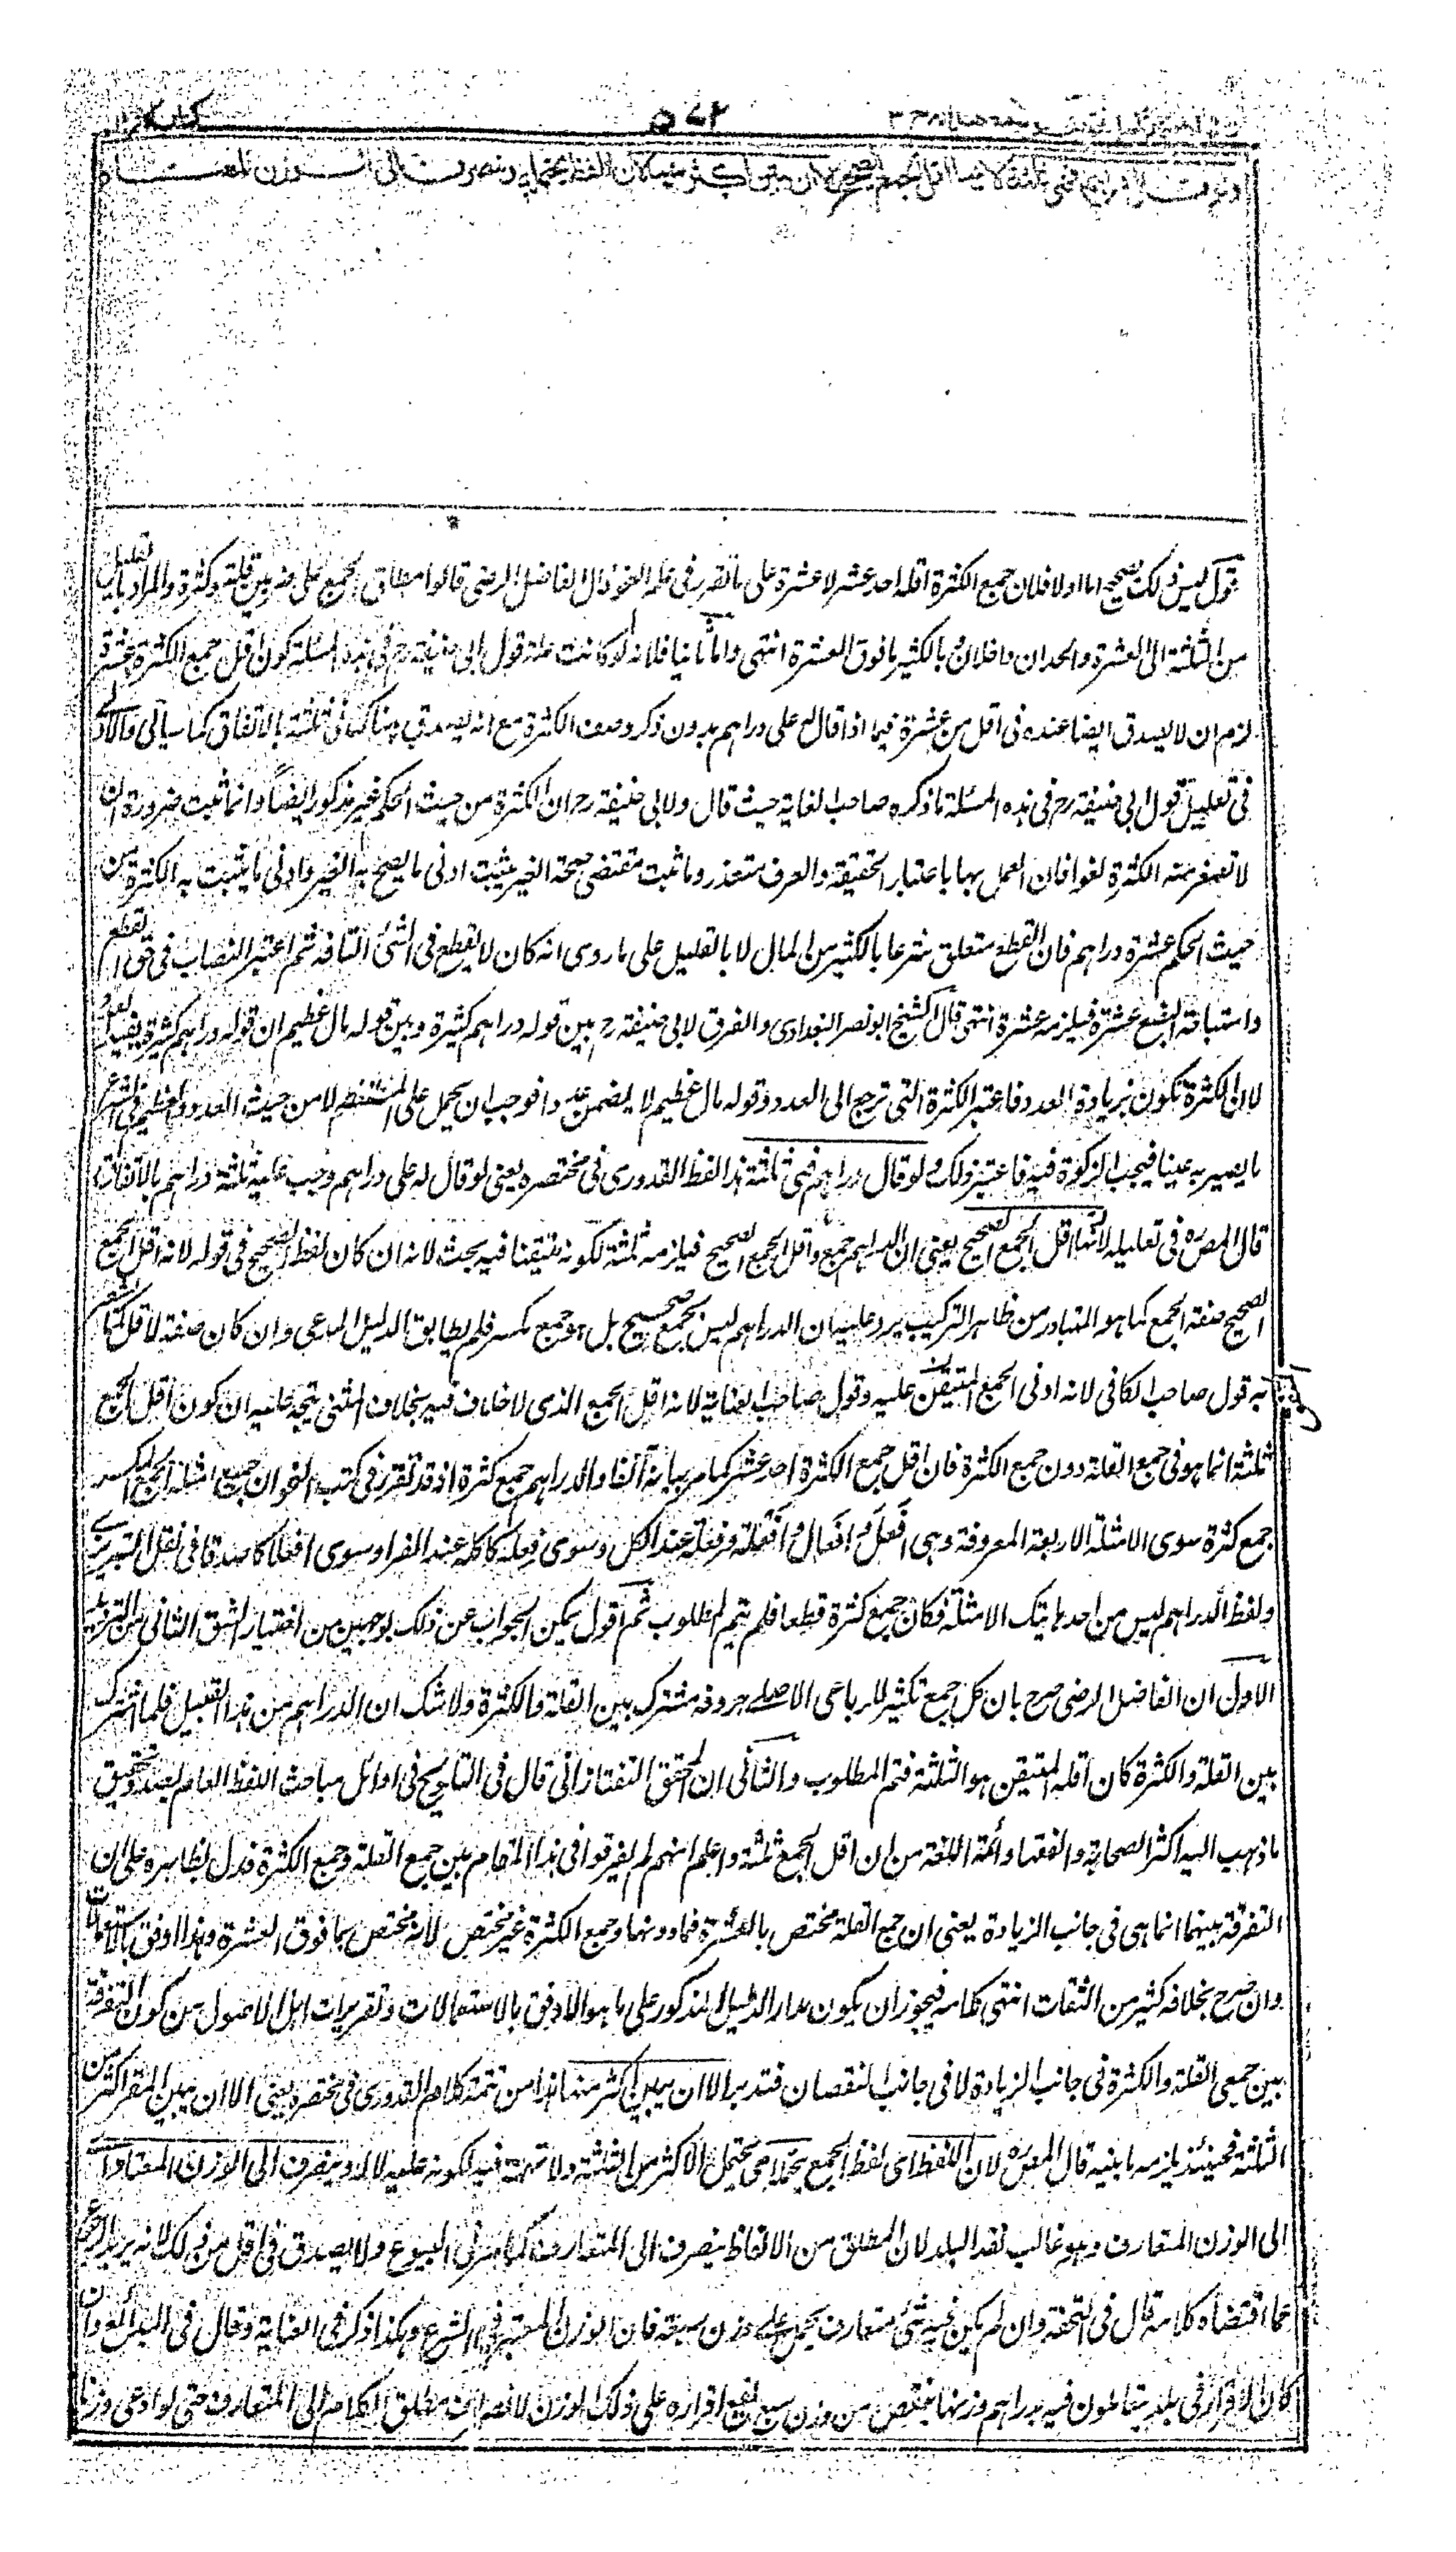 ٥٧٢
ولو قال دراهم فهي ثلثة لانها اقل الجمع الصحيح الا ان يبين اكثر منها لان اللفظ يحتمله وينصرف الى الوزن المعتاد
نقول ليس ذلك بصحيح اما اولا فلان جمع الكثرة اقله احد عشر لا عشرة على ما تقرر فى علم النحو قال الفاضل الرضى قالوا مطلق الجمع على ضربين قلة وكثرة والمراد بالقليل
من الثلثة الى العشرة والحدان داخلان وبالكثير ما فوق العشرة انتهى واما ثانيا فلانه لو كانت علة قول ابى حنيفة رح فى هذه المسئلة كون اقل جمع الكثرة عشرة
لزم ان لا يصدق ايضا عنده فى اقل من عشرة فيما اذا قال له على دراهم بدون ذكر وصف الكثرة مع انه يصدق هناك فى ثلثة بالاتفاق كما سياتى والاولى
فى تعليل قول ابى حنيفة رح فى هذه المسئلة ما ذكره صاحب الغاية حيث قال ولابى حنيفة رح ان الكثرة من حيث الحكم غير مذكور ايضا وانما ثبت ضرورة ان
لا تصير صفة الكثرة لغوا فان العمل بها باعتبار الحقيقة والعرف متعذر وما ثبت مقتضى صحة الغير يثبت ادنى ما يصح به الغير وادنى ما يثبت به الكثرة من
حيث الحكم عشرة دراهم فان القطع متعلق شرعا بالكثير من المال لا بالقليل على ما روى انه كان لا يقطع فى الشئ التافه ثم اعتبر النصاب فى حق القطع
واستباحة البضع عشرة فيلزمه عشرة انتهى قال الشيخ ابو نصر البغدادى والفرق لابى حنيفة رح بين قوله دراهم كثيرة وبين قوله مال عظيم ان قوله دراهم كثيرة يفيد العدد
لان الكثرة تكون بزيادة العدد فاعتبر الكثرة التى ترجع الى العدد وقوله مال عظيم لا يضمن عددا فوجب ان يحمل على المستعظم لا من حيث العدد والعظيم فى الشرع
ما يصير به غنيا فيجب الزكوة فيه فاعتبر ذلك ولو قال دراهم فهى ثلثة هذا لفظ القدورى فى مختصره يعنى لو قال له على دراهم وجب عليه ثلثة دراهم بالاتفاق
قال المصره فى تعليله لانها اقل الجمع الصحيح يعنى ان الدراهم جمع واقل الجمع الصحيح فيلزمه ثلثة لكونه متيقنا فيه بحث لانه ان كان لفظ الصحيح فى قوله لانه اقل الجمع
الصحيح صفة الجمع كما هو المتبادر من ظاهر التركيب يرد عليه ان الدراهم ليس بجمع صحيح بل هو جمع مكسر فلم يطابق الدليل المدعى وان كان صفة لاقل كما يشعر
به قول صاحب الكافى لانه ادنى الجمع المتيقن عليه وقول صاحب العناية لانه اقل الجمع الذى لا خلاف فيه بخلاف المثنى يتجه عليه ان كون اقل الجمع
ثلثة انما هو فى جمع القلة دون جمع الكثرة فان اقل جمع الكثرة احد عشر كما مر بيانه آنفا والدراهم جمع كثرة اذ قد تقرر فى كتب النحو ان جميع امثلة الجمع المكسر
جمع كثرة سوى الامثلة الاربعة المعروفة وهى افعل وافعال وافعلة وفعلة عند الكل وسوى فعلة كاكلة عند الفرا وسوى افعلا كاصدقا فى نقل التبريزى
ولفظ الدراهم ليس من احد هاتيك الامثلة فكان جمع كثرة قطعا فلم يتم المطلوب ثم اقول يمكن الجواب عن ذلك بوجهين من اختيار الشق الثانى من الترديد
الاول ان الفاضل الرضى صرح بان كل جمع تكثير للرباعى الاصلى حروفه مشترك بين القلة والكثرة ولا شك ان الدراهم من هذا القبيل فلما اشترك
بين القلة والكثرة كان اقله المتيقن هو الثلثة فتم المطلوب والثانى ان المحقق التفتازانى قال فى التلويح فى اوائل مباحث اللفظ العام بصدد تحقيق
ما ذهب اليه اكثر الصحابة والفقها وائمة اللغة من ان اقل الجمع ثلثة واعلم انهم لم يفرقوا فى هذا المقام بين جمع القلة وجمع الكثرة فدل بظاهره على ان
التفرقة بينهما انما هى فى جانب الزيادة يعنى ان جمع القلة مختص بالعشرة فما دونها وجمع الكثرة غير مختص لانه مختص بما فوق العشرة وهذا اوفق بالاستعمالات
وان صرح بخلافه كثير من الثقات انتهى كلامه فيجوز ان يكون مدار الدليل المذكور على ما هو الاوفق بالاستعمالات وتقريرات اهل الاصول من كون التفرقة
بين جمعى القلة والكثرة فى جانب الزيادة لا فى جانب النقصان فتدبر الا ان يبين اكثر منها هذا من تتمة كلام القدورى فى مختصره يعنى الا ان يبين المقر اكثر من
الثلثة فحينئذ يلزمه ما بينه قال المصره لان اللفظ اى لفظ الجمع يحتمله اى يحتمل الاكثر من الثلثة ولا تهمة فيه لكونه عليه لا له وينصرف الى الوزن المعتاد اى
الى الوزن المتعارف وهو غالب نقد البلد لان المطلق من الالفاظ ينصرف الى المتعارف كما مر فى البيوع ولا يصدق فى اقل من ذلك لانه يريد الرجوع
عما اقتضاه كلامه قال فى التحفة وان لم يكن فيه شئ متعارف يحمل على وزن سبعة فان الوزن المعتبر فى الشرع وهكذا ذكر فى الغاية وقال فى البدائع وان
كان الاقرار فى بلد يتعاملون فيه بدراهم وزنها ينقص من وزن سبعة يقع اقراره على ذلك الوزن لانصراف مطلق الكلام الى المتعارف حتى لو ادعى وزنا